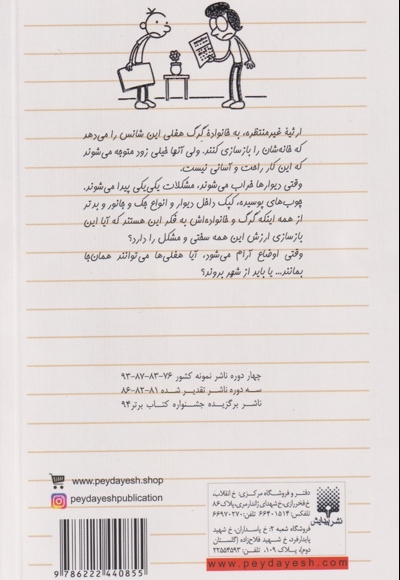 ارثیهٔ غیرمنتظره، به خانوادهٔ گرگ هفلی این شانس را می‌دهد
که خانه‌شان را بازسازی کنند. ولی آنها خیلی زود متوجه می‌شوند
که این کار راحت و آسانی نیست.
وقتی دیوارها خراب می‌شوند، مشکلات یکی‌یکی پیدا می‌شوند.
چوب‌های پوسیده، کپک داخل دیوار و انواع جک و جانور و بدتر
از همه اینکه گرگ و خانواده‌اش به فکر این هستند که آیا این
بازسازی ارزش این همه سختی و مشکل را دارد؟
وقتی اوضاع آرام می‌شود، آیا هفلی‌ها می‌توانند همان‌جا
بمانند... یا باید از شهر بروند؟
چهار دوره ناشر نمونه کشور ۷۶-۸۳-۸۷-۹۳
سه دوره ناشر تقدیر شده ۸۱-۸۲-۸۶
ناشر برگزیده جشنواره کتاب برتر ۹۴
www.peydayesh.shop
peydayeshpublication
دفتر و فروشگاه مرکزی: خ انقلاب،
خ فخررازی، خ شهدای ژاندارمری، پلاک ۸۶
تلفکس: ۶۶۴۰۱۵۱۴ تلفن: ۶۶۹۷۰۲۷۰
فروشگاه شعبه ۲: خ پاسداران، خ شهید
پایدارفرد، خ شهید فلاح‌زاده (گلستان
دوم)، پلاک ۱۰۹، تلفن: ۲۲۵۵۴۵۹۳
نشر پیدایش
www.peydayesh.com
9 786222 440855